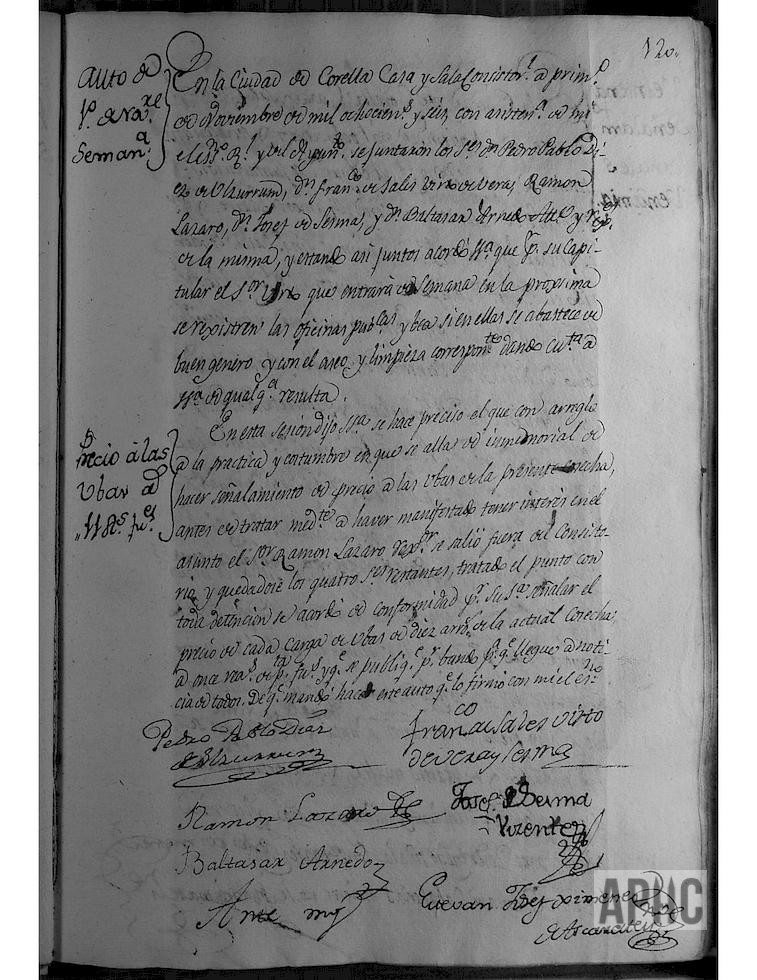 120.
Auto de
1º de Nov.re
Seman.a
En la Ciudad de Corella Casa y Sala Consistor.l a prim.o
de Noviembre de mil ochocien.s y seis con asisten.a de mi
el Ess.no R.l y del Ayun.to se juntaron los S.res D.n Pedro Pablo Di-
ez de Ulzurrum, D.n Fran.co de Sales Virto de Vera, Ramon
Lazaro, D.n Josef de Sesma, y D.n Baltasar Arnedo Alc.e y Reg.s
de la misma, y estando asi juntos acordó S.Sa. que p.r su Capi-
tular el S.or Virto que entrará de Semana en la proxima
se rexistren las oficinas pub.cas y vea si en ellas se abastece de
buen genero y con el aseo, y limpieza correspon.te dando cu.ta a
S.Sa. de qualq.a resulta.
Precio á las
Ubas de
11 R.s fu.es
En esta sesion dijo S.Sa. se hace preciso el que con arreglo
a la practica y costumbre en que se alla de inmemorial de
hacer señalamiento de precio a las ubas de la presente cosecha,
antes de tratar med.te a haver manifestado tener interés en el
asunto el S.or Ramon Lazaro Rex.or se salió fuera del Consisto-
rio, y quedadose los quatro S.res restantes, tratado el punto con
toda detencion se acordó de conformidad p.r su S.a señalar el
precio de cada carga de ubas de diez arr.s de la actual Cosecha
a once rea.s de p.ta fu.s y q.e se publiq.e p.r bando p.a q.e llegue a noti-
cia de todos. De q.e mandó hacer este auto q.e lo firmó con mi el es.no
Pedro Pablo Diez
de Ulzurrum
Fran.co de Sales Virto
de Vera y Sesma
Ramon Lazaro
Josef de Sesma
Vizente
Baltasar Arnedo
Ante mi
Estevan Josef Ximenez
de Ascarate
APHC